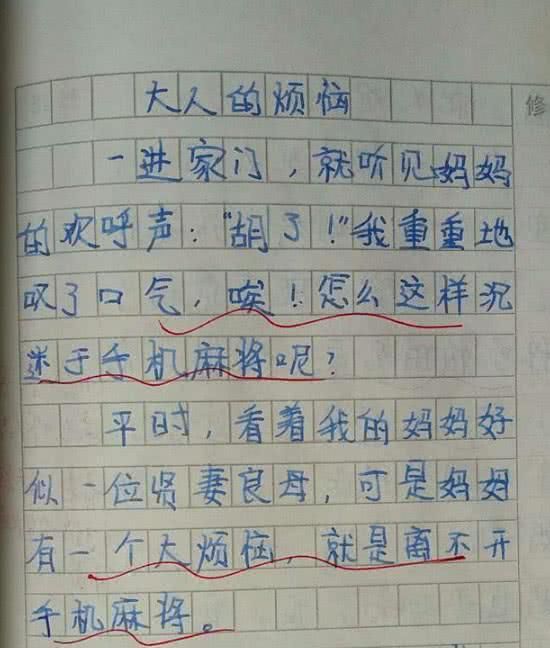 大人的烦恼
修
一进家门，就听见妈妈
的欢呼声："胡了！"我重重地
叹了口气，唉！怎么这样沉
迷于手机麻将呢？
平时，看着我的妈妈好
似一位贤妻良母，可是妈妈
有一个大烦恼，就是离不开
手机麻将。